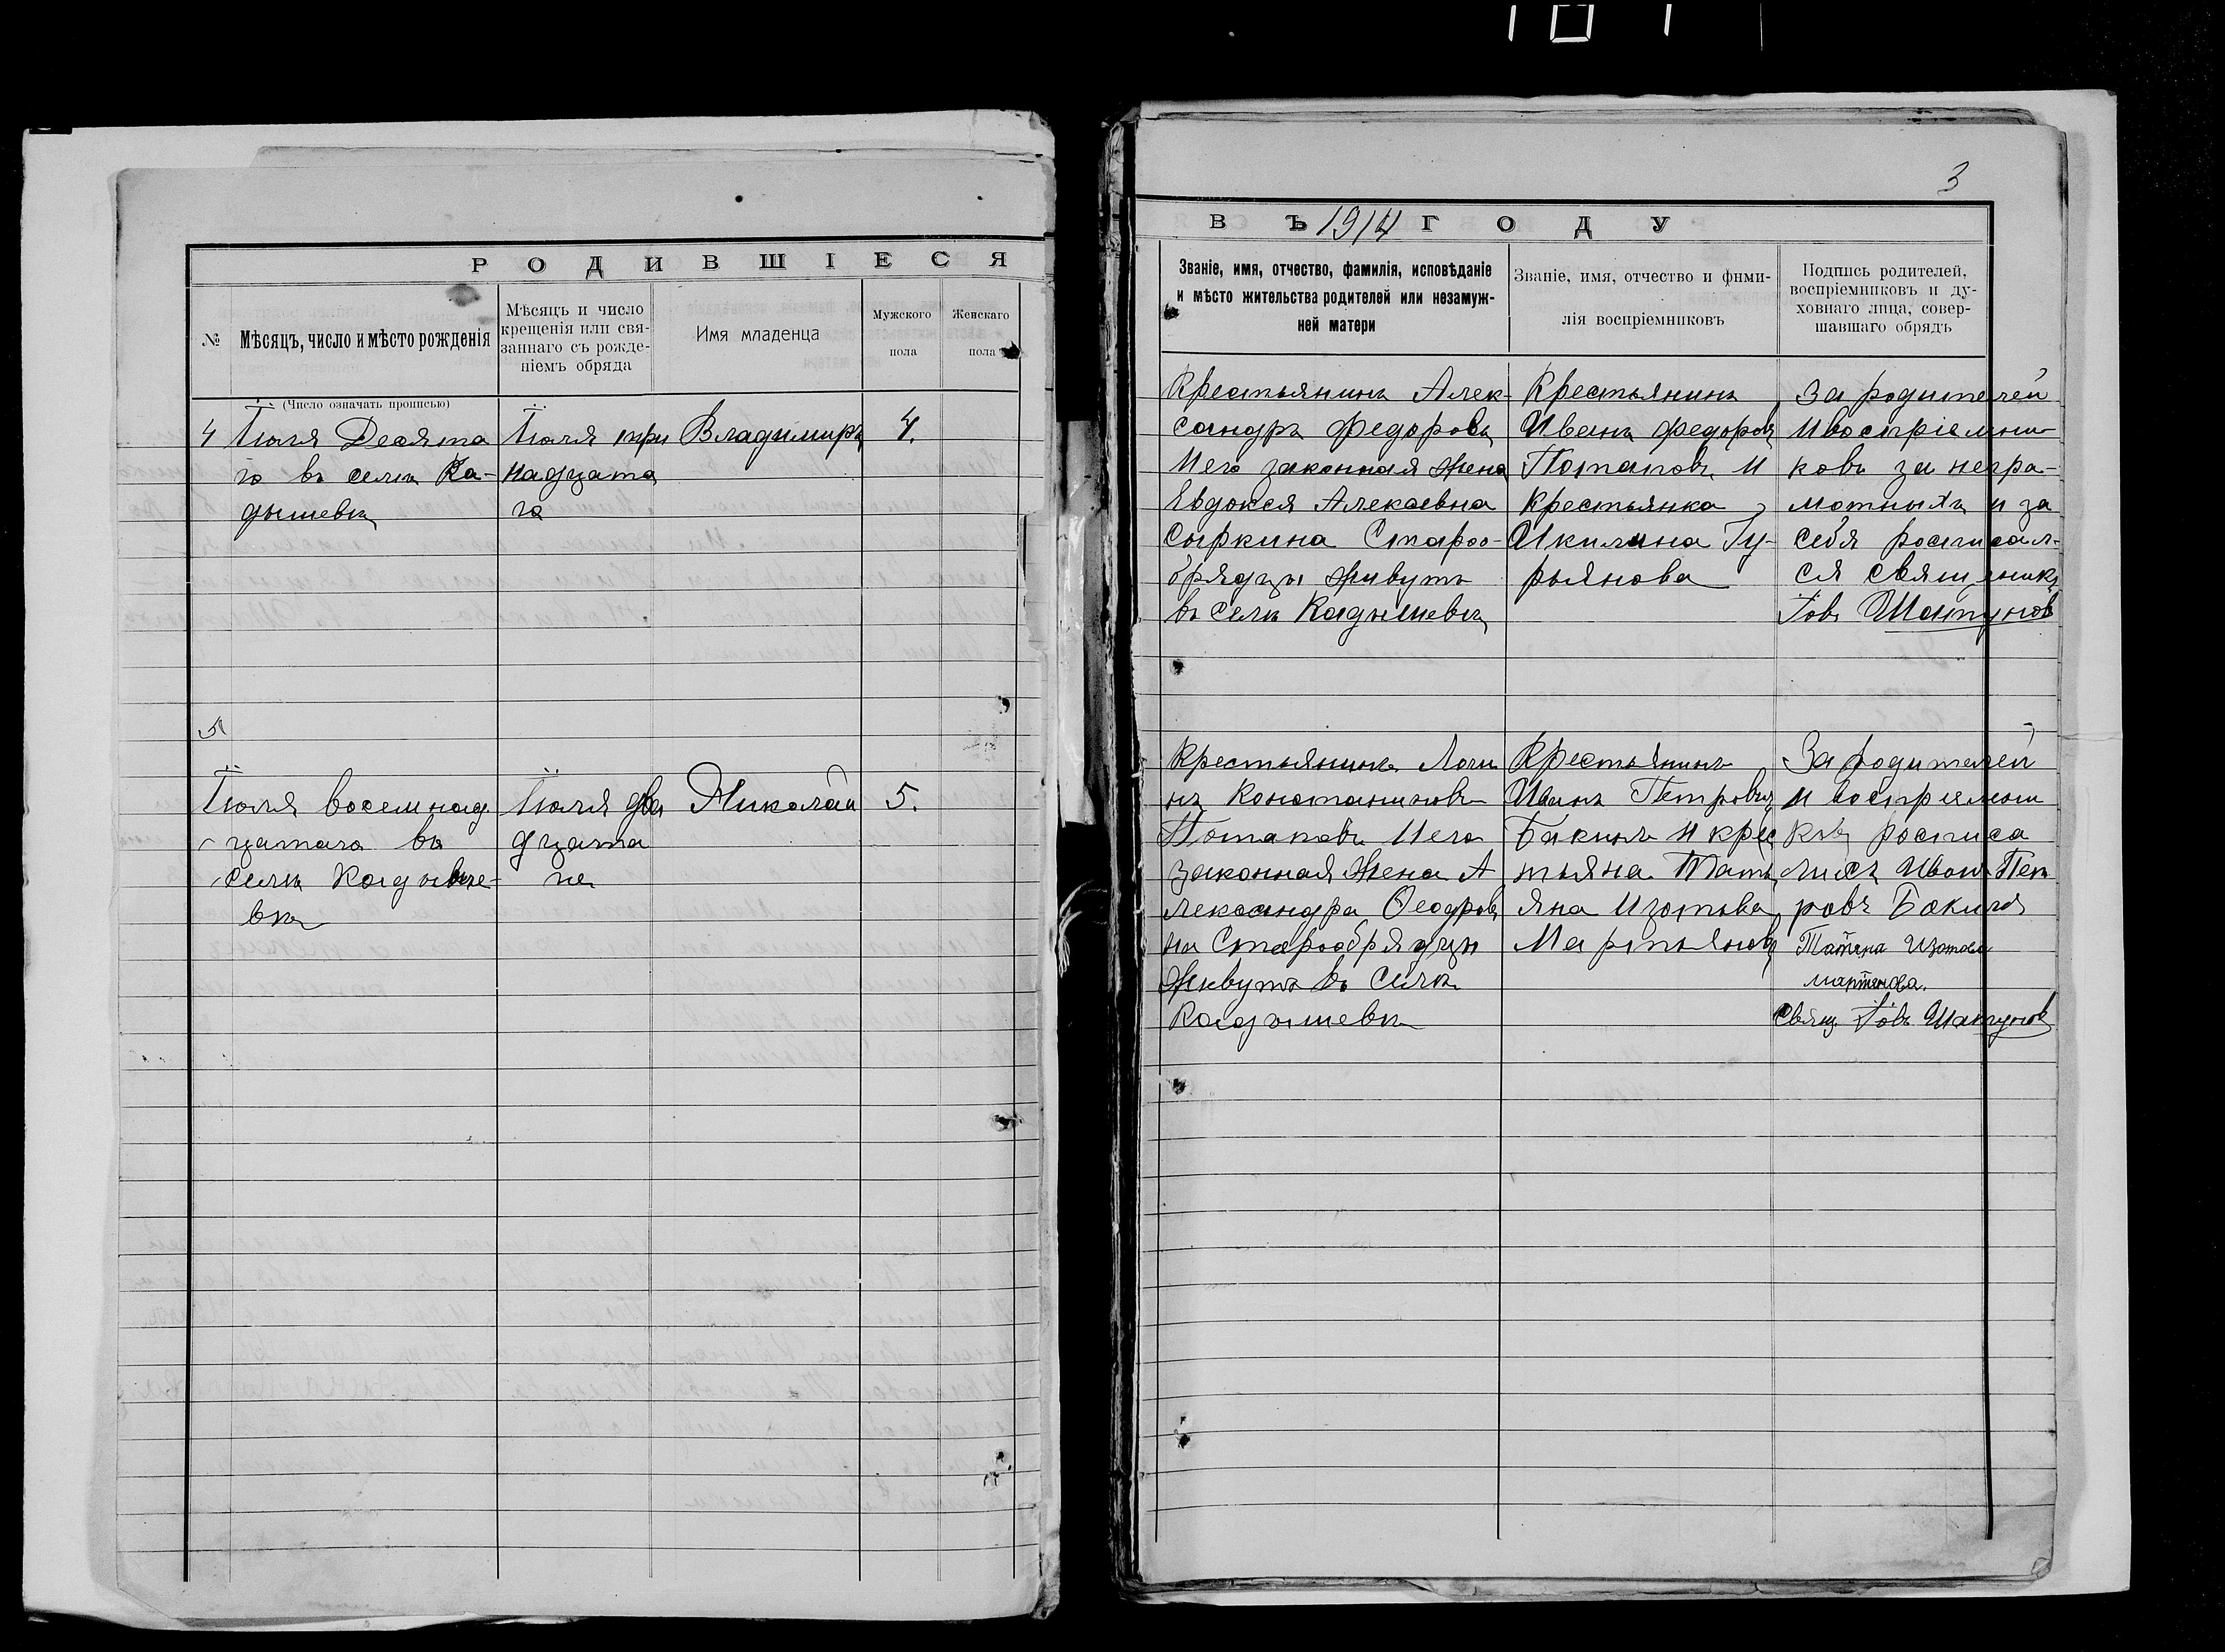 3
РОДИВШІЕСЯ
ВЪ 1914 ГОДУ
№
Мѣсяцъ, число и мѣсто рожденія
(Число означать прописью)
Мѣсяцъ и число
крещенія или свя-
заннаго съ рожде-
ніемъ обряда
Имя младенца
Мужского
пола
Женскаго
пола
Званіе, имя, отчество, фамилія, исповѣданіе
и мѣсто жительства родителей или незамуж-
ней матери
Званіе, имя, отчество и фими-
лія воспріемниковъ
Подпись родителей,
воспріемниковъ и ду-
ховнаго лица, совер-
шавшаго обрядъ
4
Іюля Десята
го въ селѣ Ка-
дышевѣ
Іюля три
надцата
го
Владимиръ
4.
Крестьянинъ Алек-
сандръ Федоровъ
И его законная жена
Евдокея Алексевна
Сыркина Староо-
брядцы живутъ
въ селѣ Кадышевѣ
Крестьянинъ
Иванъ Федоровъ
Потаповъ И
Крестьянка
Акилина Гу-
рьянова
За родителей
И воспріемни-
ковъ за негра-
мотныхъ и за
себя росписал-
ся священикъ
Іовъ Шапуновъ
5
Іюля восемнад
цатаго въ
селѣ Кадыше-
вѣ
Іюля два
дцата
го
Николай
5.
Крестьянинъ Логи
нъ Константиновъ
Потаповъ И его
законная жена А
лександра Феодоров
на Старообрядцы
живутъ въ Селѣ
Кадышевѣ
Крестьянинъ
Иванъ Петровъ
Бакинъ и крес
тьяна Тать
яна Изотова
Мартьянова
За родителей
И воспріемни
ковъ росписа
лись Иванъ Пет
ровъ Бакинъ
Татяна Изотова
мартянова.
Свящ. Іовъ Шапуновъ